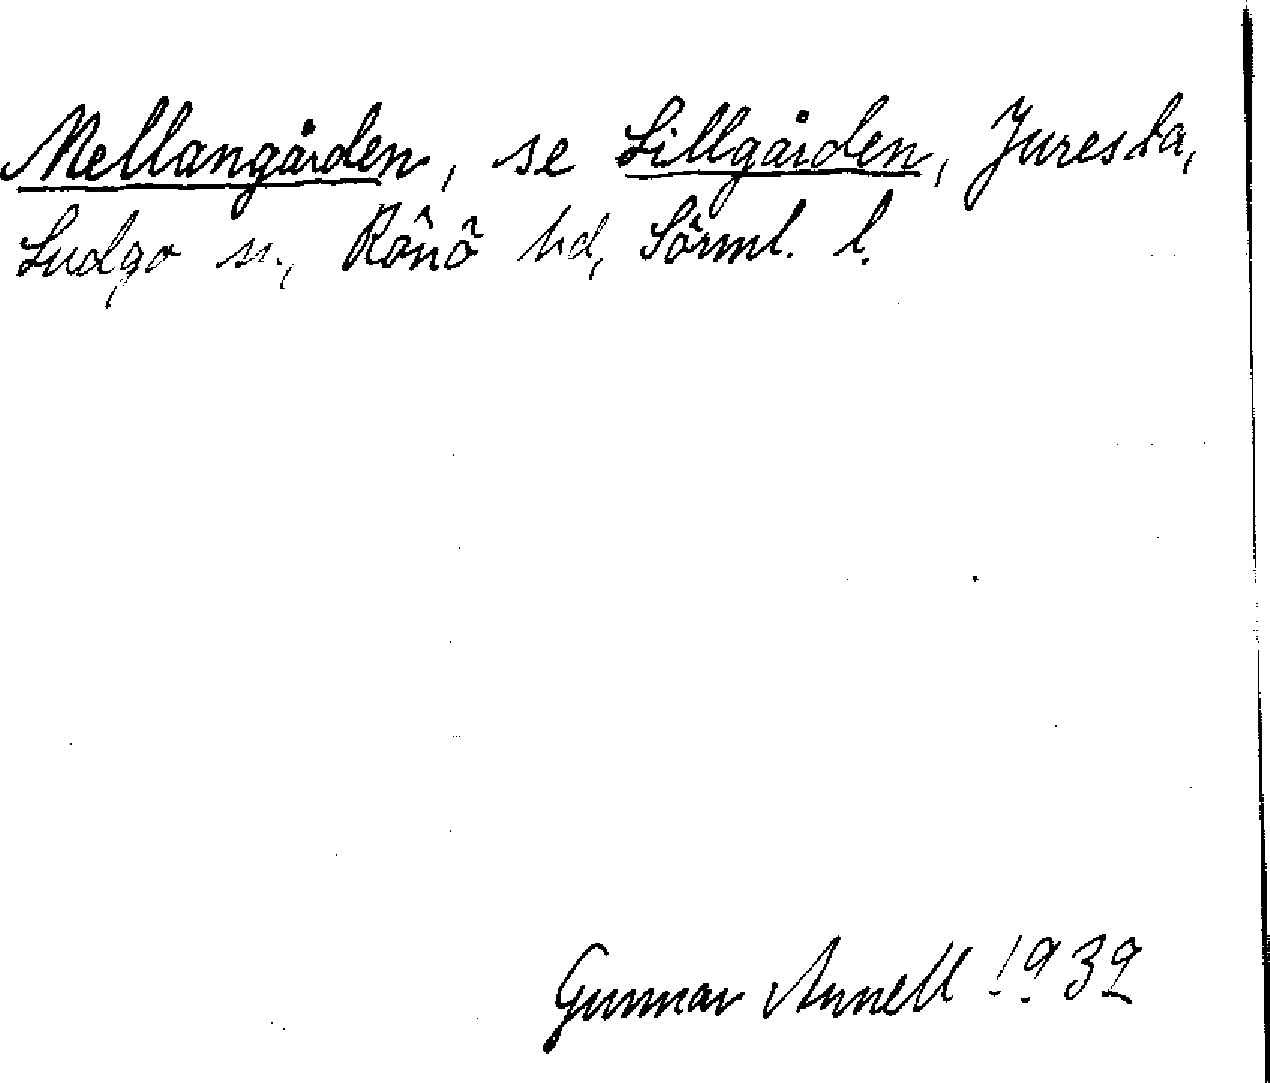 Mellangården, se Lillgården, Juresta,
Ludgo sn, Rönö hd, Sörml. l.
Gunnar Annell 1932